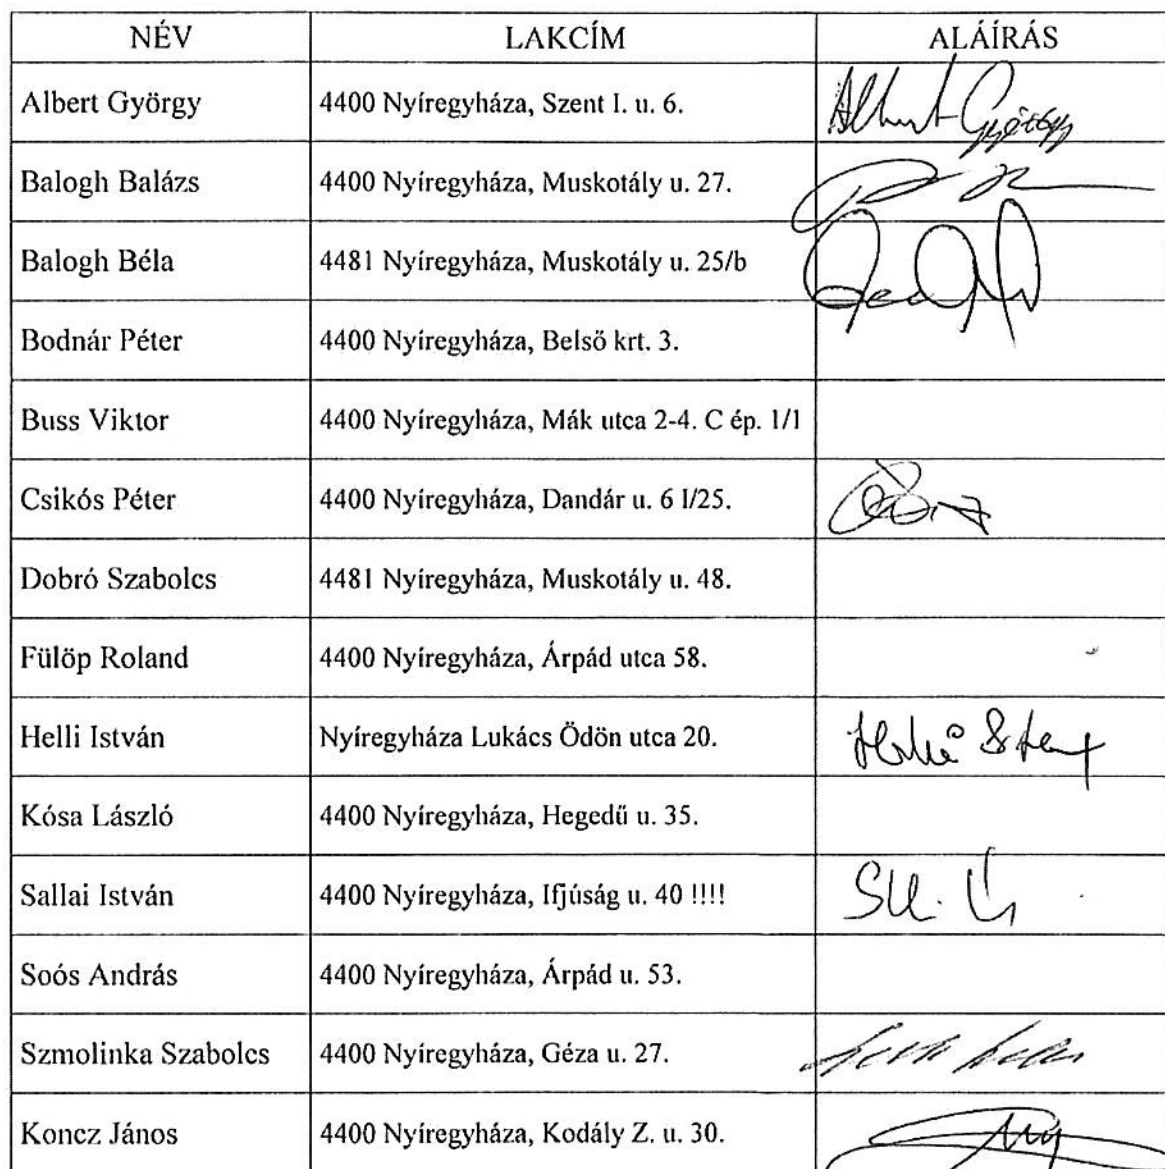 NÉV LAKCÍM ALÁÍRÁS
Albert György 4400 Nyíregyháza, Szent I. u. 6. Albert György
Balogh Balázs 4400 Nyíregyháza, Muskotály u. 27.
Balogh Béla 4481 Nyíregyháza, Muskotály u. 25/b
Bodnár Péter 4400 Nyíregyháza, Belső krt. 3.
Buss Viktor 4400 Nyíregyháza, Mák utca 2-4. C ép. 1/1
Csikós Péter 4400 Nyíregyháza, Dandár u. 6 1/25.
Dobró Szabolcs 4481 Nyíregyháza, Muskotály u. 48.
Fülöp Roland 4400 Nyíregyháza, Árpád utca 58.
Helli István Nyíregyháza Lukács Ödön utca 20.
Kósa László 4400 Nyíregyháza, Hegedű u. 35.
Sallai István 4400 Nyíregyháza, Ifjúság u. 40 !!!!
Soós András 4400 Nyíregyháza, Árpád u. 53.
Szmolinka Szabolcs 4400 Nyíregyháza, Géza u. 27.
Koncz János 4400 Nyíregyháza, Kodály Z. u. 30.